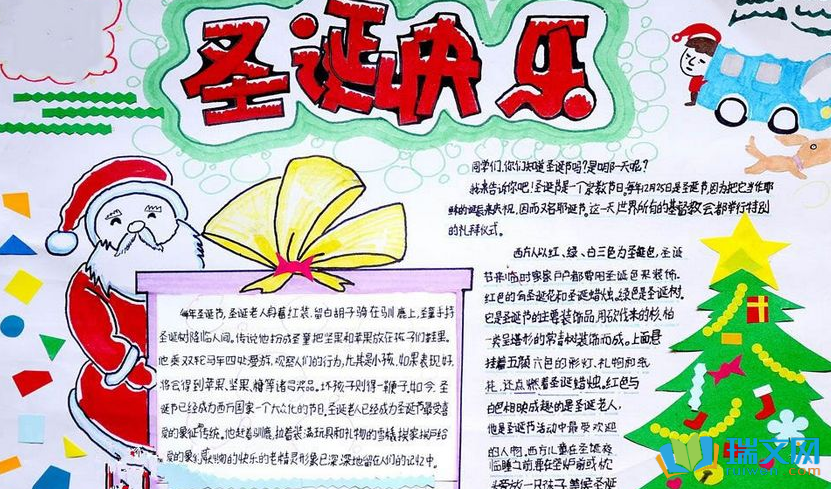 圣诞快乐
同学们,你们知道圣诞节吗?是哪一天呢?
我来告诉你吧!圣诞节是一个宗教节日,每年12月25日是圣诞节因为把它当作耶
稣的诞辰来庆祝,因而又名耶诞节。这一天世界所有的基督教会都举行特别
的礼拜仪式。
西方人以红、绿、白三色为圣诞色,圣诞
节来临时家家户户都要用圣诞色来装饰。
红色的有圣诞花和圣诞蜡烛。绿色是圣诞树。
它是圣诞节的主要装饰品,用砍伐来的杉、柏
一类呈塔形的常青树装饰而成。上面悬
挂着五颜六色的彩灯、礼物和纸
花,还点燃着圣诞蜡烛。红色与
白色相映成趣的是圣诞老人,
他是圣诞节活动中最受欢迎
的人物。西方儿童在圣诞夜
临睡之前,要在壁炉前或枕
头旁放一只袜子,等候圣诞
每年圣诞节,圣诞老人身着红装,留白胡子骑在驯鹿上,圣童手持
圣诞树降临人间。传说他扮成圣童把坚果和苹果放在孩子们鞋里。
他乘双轮马车四处漫游,观察人们的行为,尤其是小孩,如果表现好,
将会得到苹果、坚果、糖等诸多奖品。坏孩子则得一鞭子。如今圣
诞节已经成为西方国家一个大众化的节日。圣诞老人已经成为圣诞节最受喜
爱的象征传统。他赶着驯鹿,拉着装满玩具和礼物的雪橇挨家挨户给
的快乐的老精灵形象已深深地留在人们的记忆中。
瑞文网
ruiwen.com